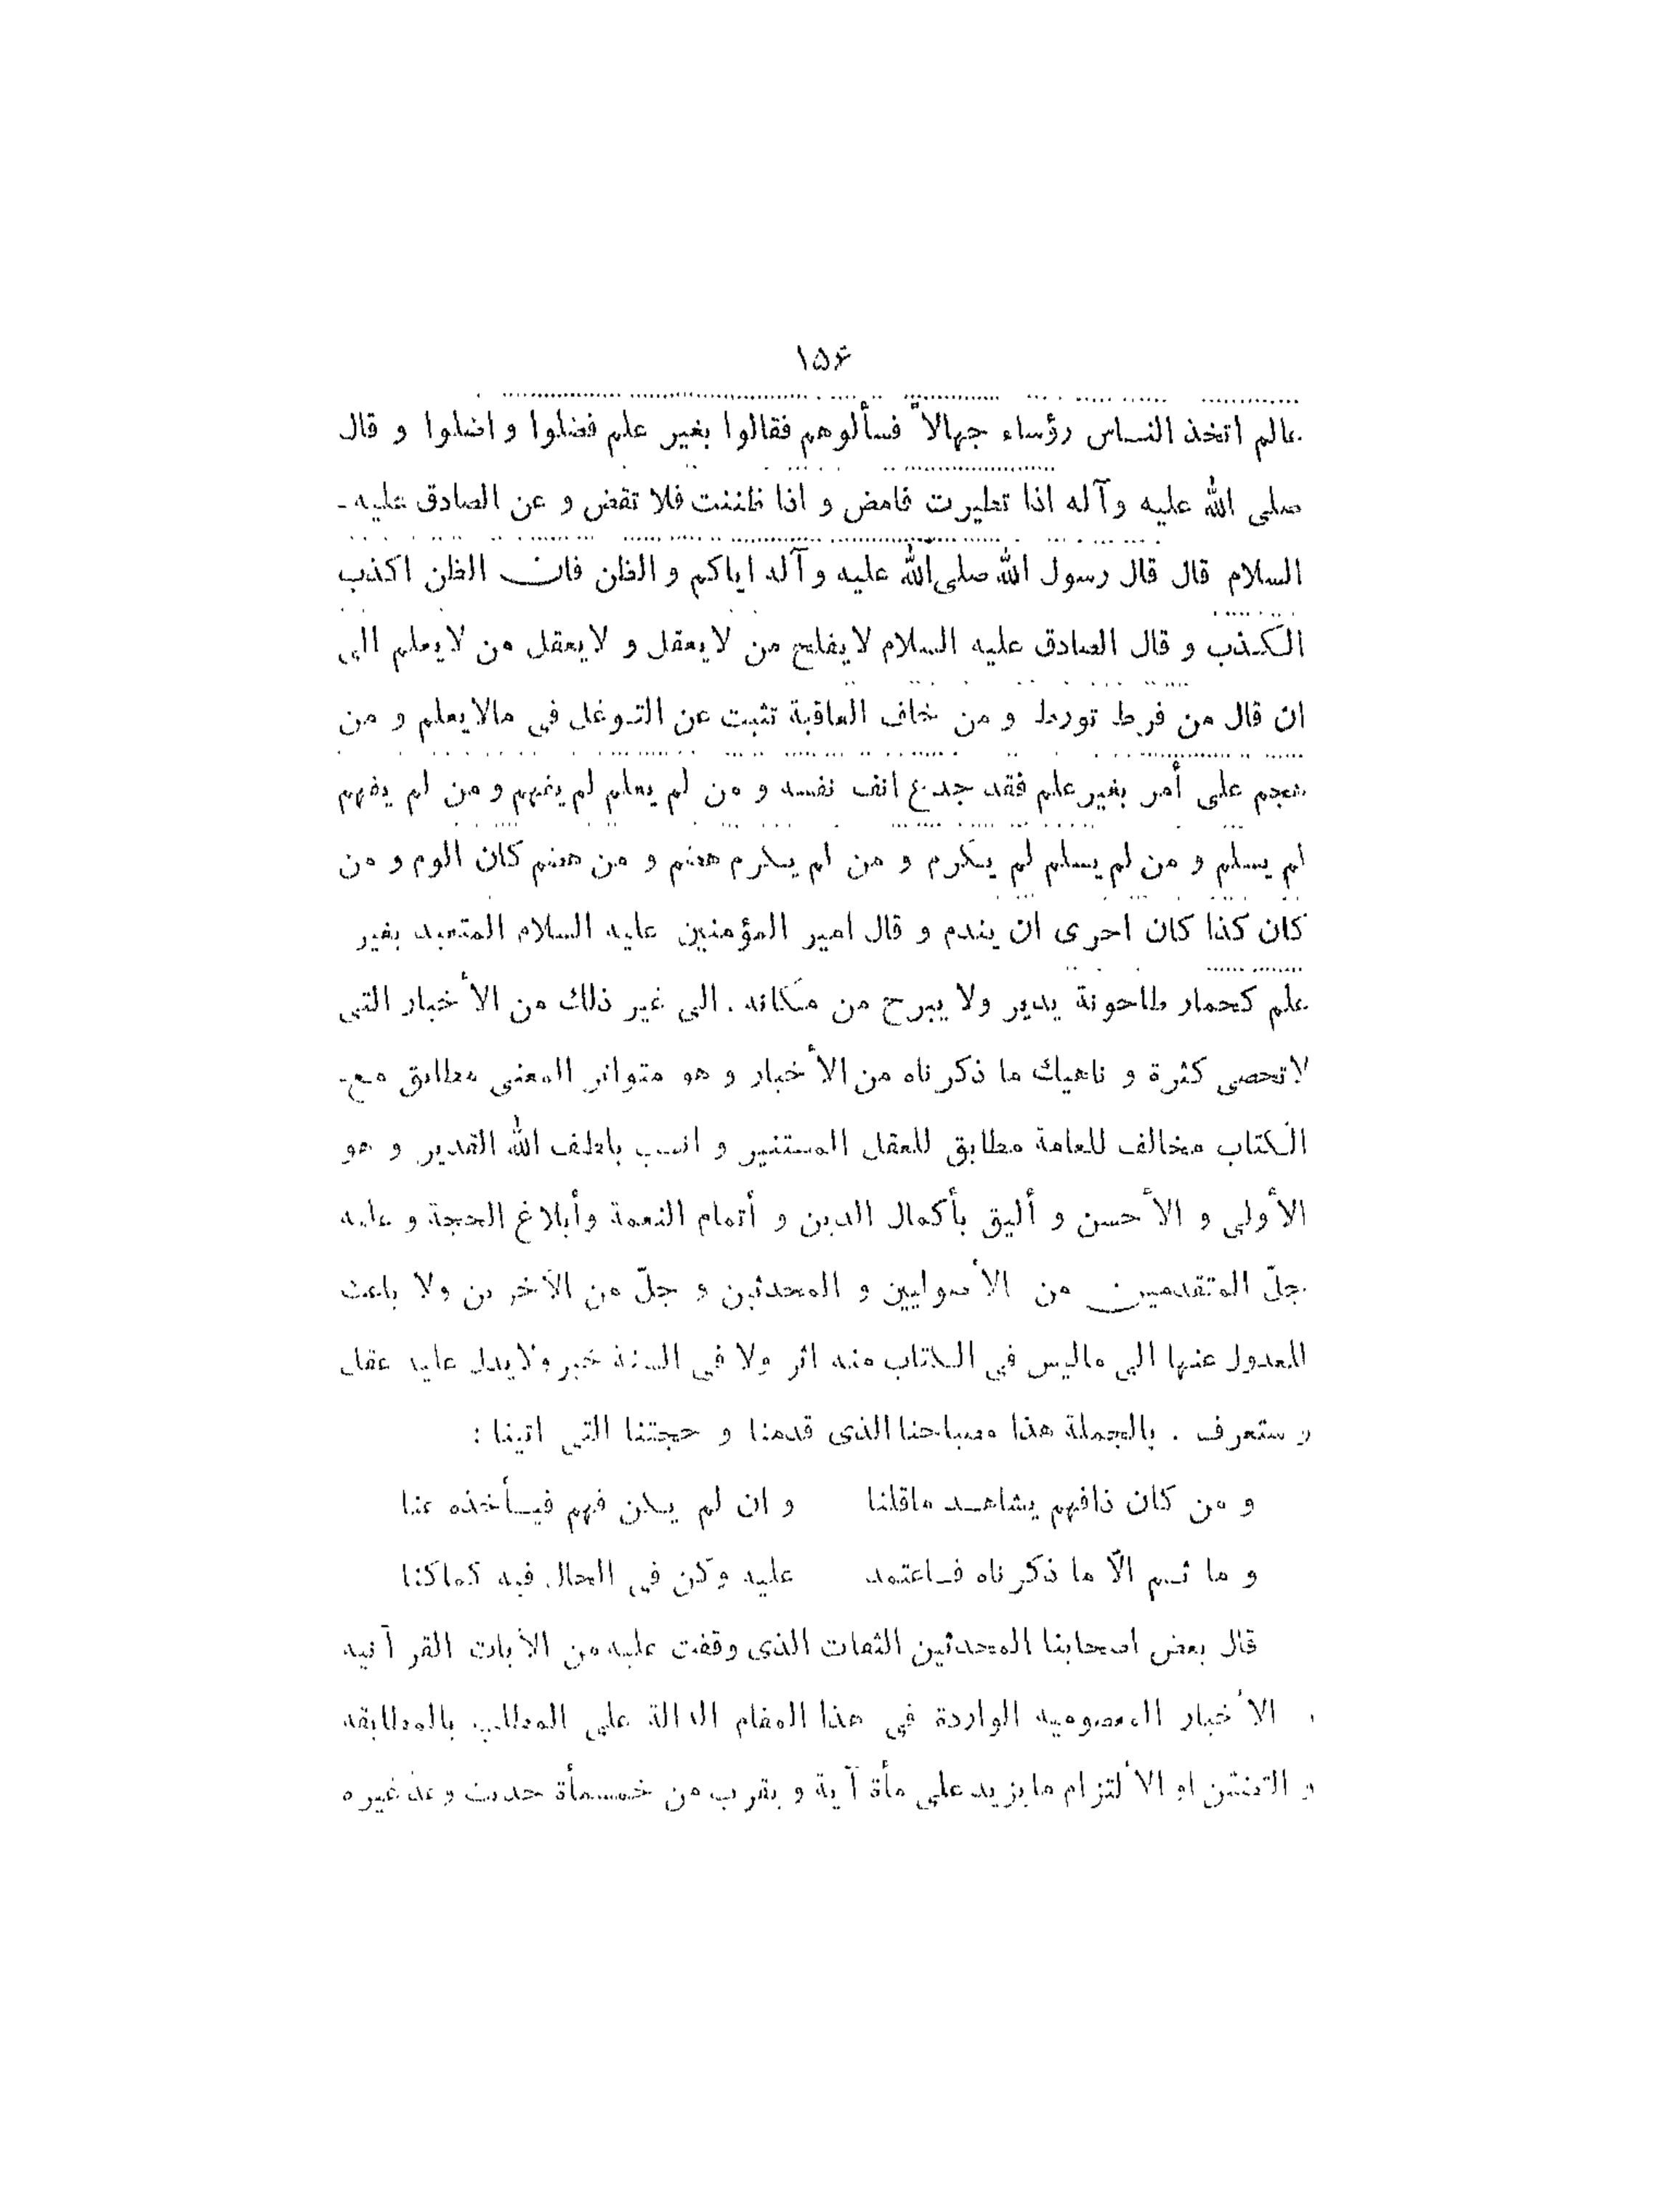 ۱۵۶
عالم اتخذ النـاس رؤساء جهالاً فسألوهم فقالوا بغير علم فضلوا و اضلوا و قال
صلى الله عليه وآله اذا تطيرت فامض و اذا ظننت فلا تقض و عن الصادق عليه-
السلام قال قال رسول الله صلى الله عليه وآله اياكم و الظن فان الظن اكذب
الكذب و قال الصادق عليه السلام لايفلح من لايعقل و لايعقل من لايعلم الى
ان قال من فرط تورط و من خاف العاقبة تثبت عن التوغل فى مالايعلم و من
هجم على أمر بغير علم فقد جدع انف نفسه و من لم يعلم لم يفهم و من لم يفهم
لم يسلم و من لم يسلم لم يكرم و من لم يكرم هضم و من هضم كان الوم و من
كان كذا كان احرى ان يندم و قال امير المؤمنين عليه السلام المتعبد بغير
علم كحمار طاحونة يدير ولا يبرح من مكانه . الى غير ذلك من الأخبار التى
لاتحصى كثرة و ناهيك ما ذكرناه من الأخبار و هو متواتر المعنى مطابق مع-
الكتاب مخالف للعامة مطابق للعقل المستنير و انسب بلطف الله القدير و هو
الأولى و الأحسن و أليق بأكمال الدين و أتمام النعمة وأبلاغ الحجة و عليه
جلّ المتقدمين من الأصوليين و المحدثين و جلّ من الآخرين ولا باعث
للعدول عنها الى ماليس فى الكتاب منه اثر ولا فى السنة خبر ولايدل عليه عقل
و ستعرف . بالجملة هذا مصباحنا الذى قدمنا و حجتنا التى اتينا :
و من كان ذافهم يشاهـد ماقلنا و ان لم يكن فهم فيـأخذه عنا
و ما ثـم الّا ما ذكرناه فـاعتمد عليه وكن فى الحال فيه كماكنا
قال بعض اصحابنا المحدثين الثقات الذى وقفت عليه من الآيات القرآنيه
و الأخبار المعصوميه الواردة فى هذا المقام الدالة على المطلب بالمطابقه
و التضمّن او الألتزام مايزيد على مأة آية و يقرب من خمسمأة حديث و غيره